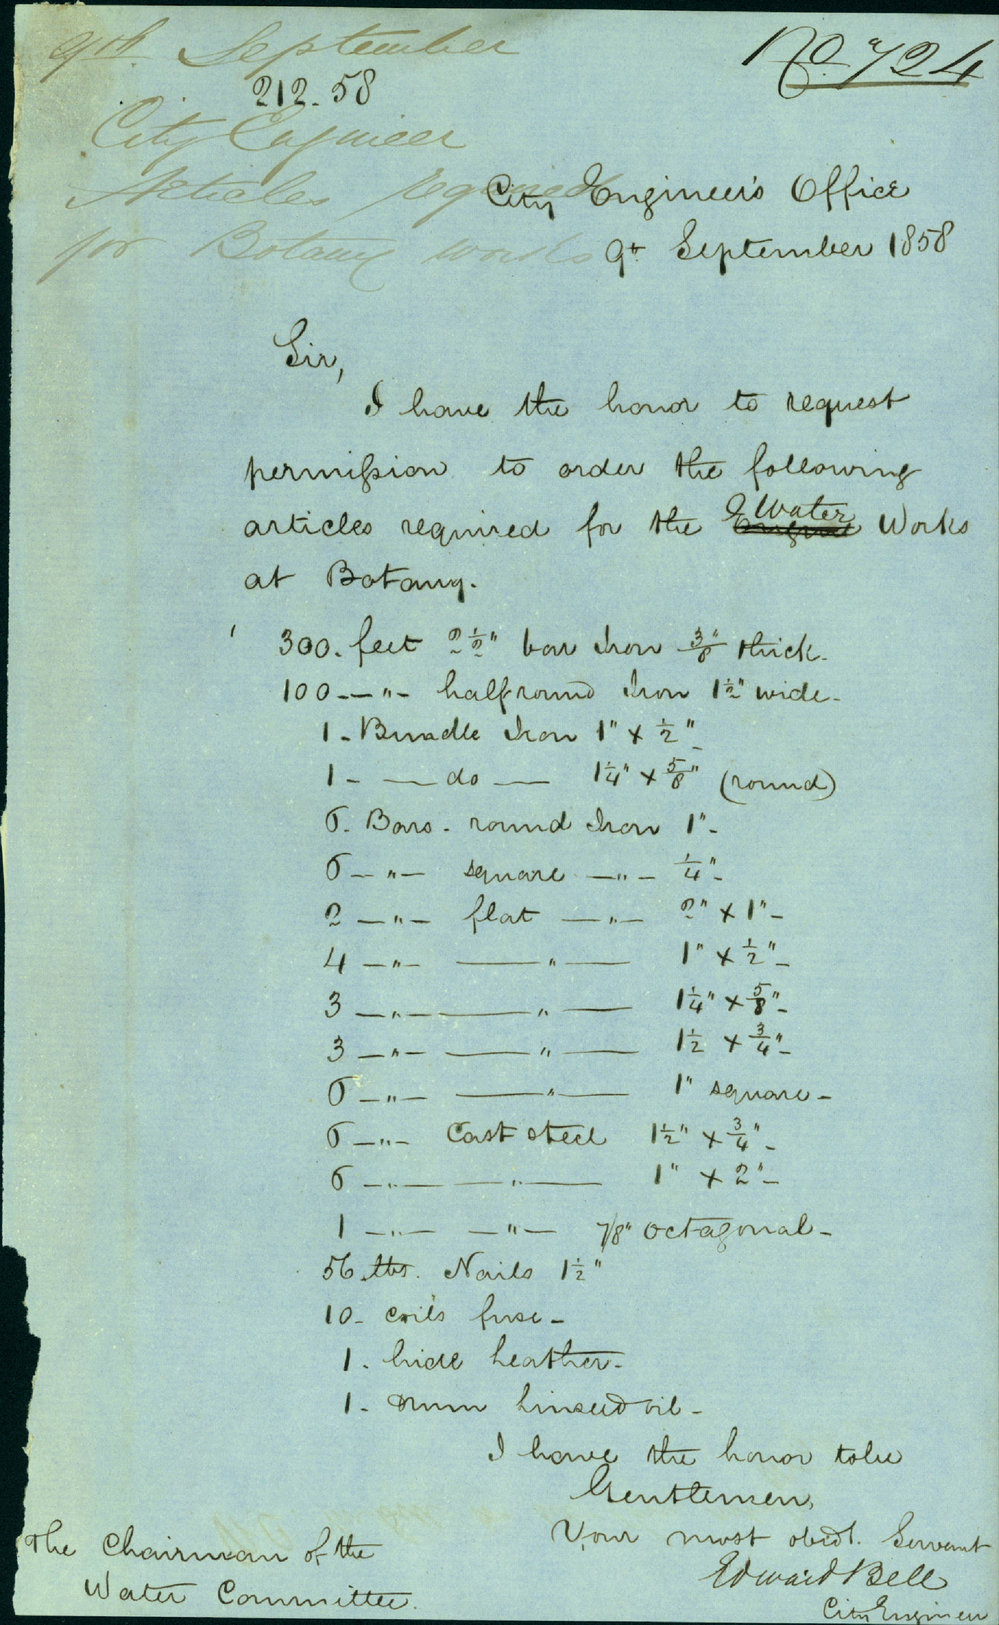 9th September
No. 724
212-58
City Engineer
Articles required
for Botany works
City Engineer's Office
9th September 1858
Sir,
I have the honor to request
permission to order the following
articles required for the Water Works
at Botany.
300. feet 2 1/2" bar Iron 3/8" thick.
100 — " — half round Iron 1 1/2" wide -
1 - Bundle Iron 1" x 1/2" -
1 - — do — 1 1/4" x 5/8" (round)
6. Bars - round Iron 1" -
6 — " — square — " — 1/4" -
2 — " — flat — " — 2" x 1" -
4 — " — — " — 1" x 1/2" -
3 — " — — " — 1 1/4" x 5/8" -
3 — " — — " — 1 1/2 x 3/4" -
6 — " — — " — 1" square -
6 — " — Cast Steel 1 1/2" x 3/4" -
6 — " — — " — 1" x 2" -
1 — " — — " — 7/8" Octagonal -
56 lbs. Nails 1 1/2"
10 - coils fuse -
1 - hide Leather -
1 - drum Linseed oil -
I have the honor to be
Gentlemen,
Your most obedt. Servant
Edward Bell
City Engineer
The Chairman of the
Water Committee.